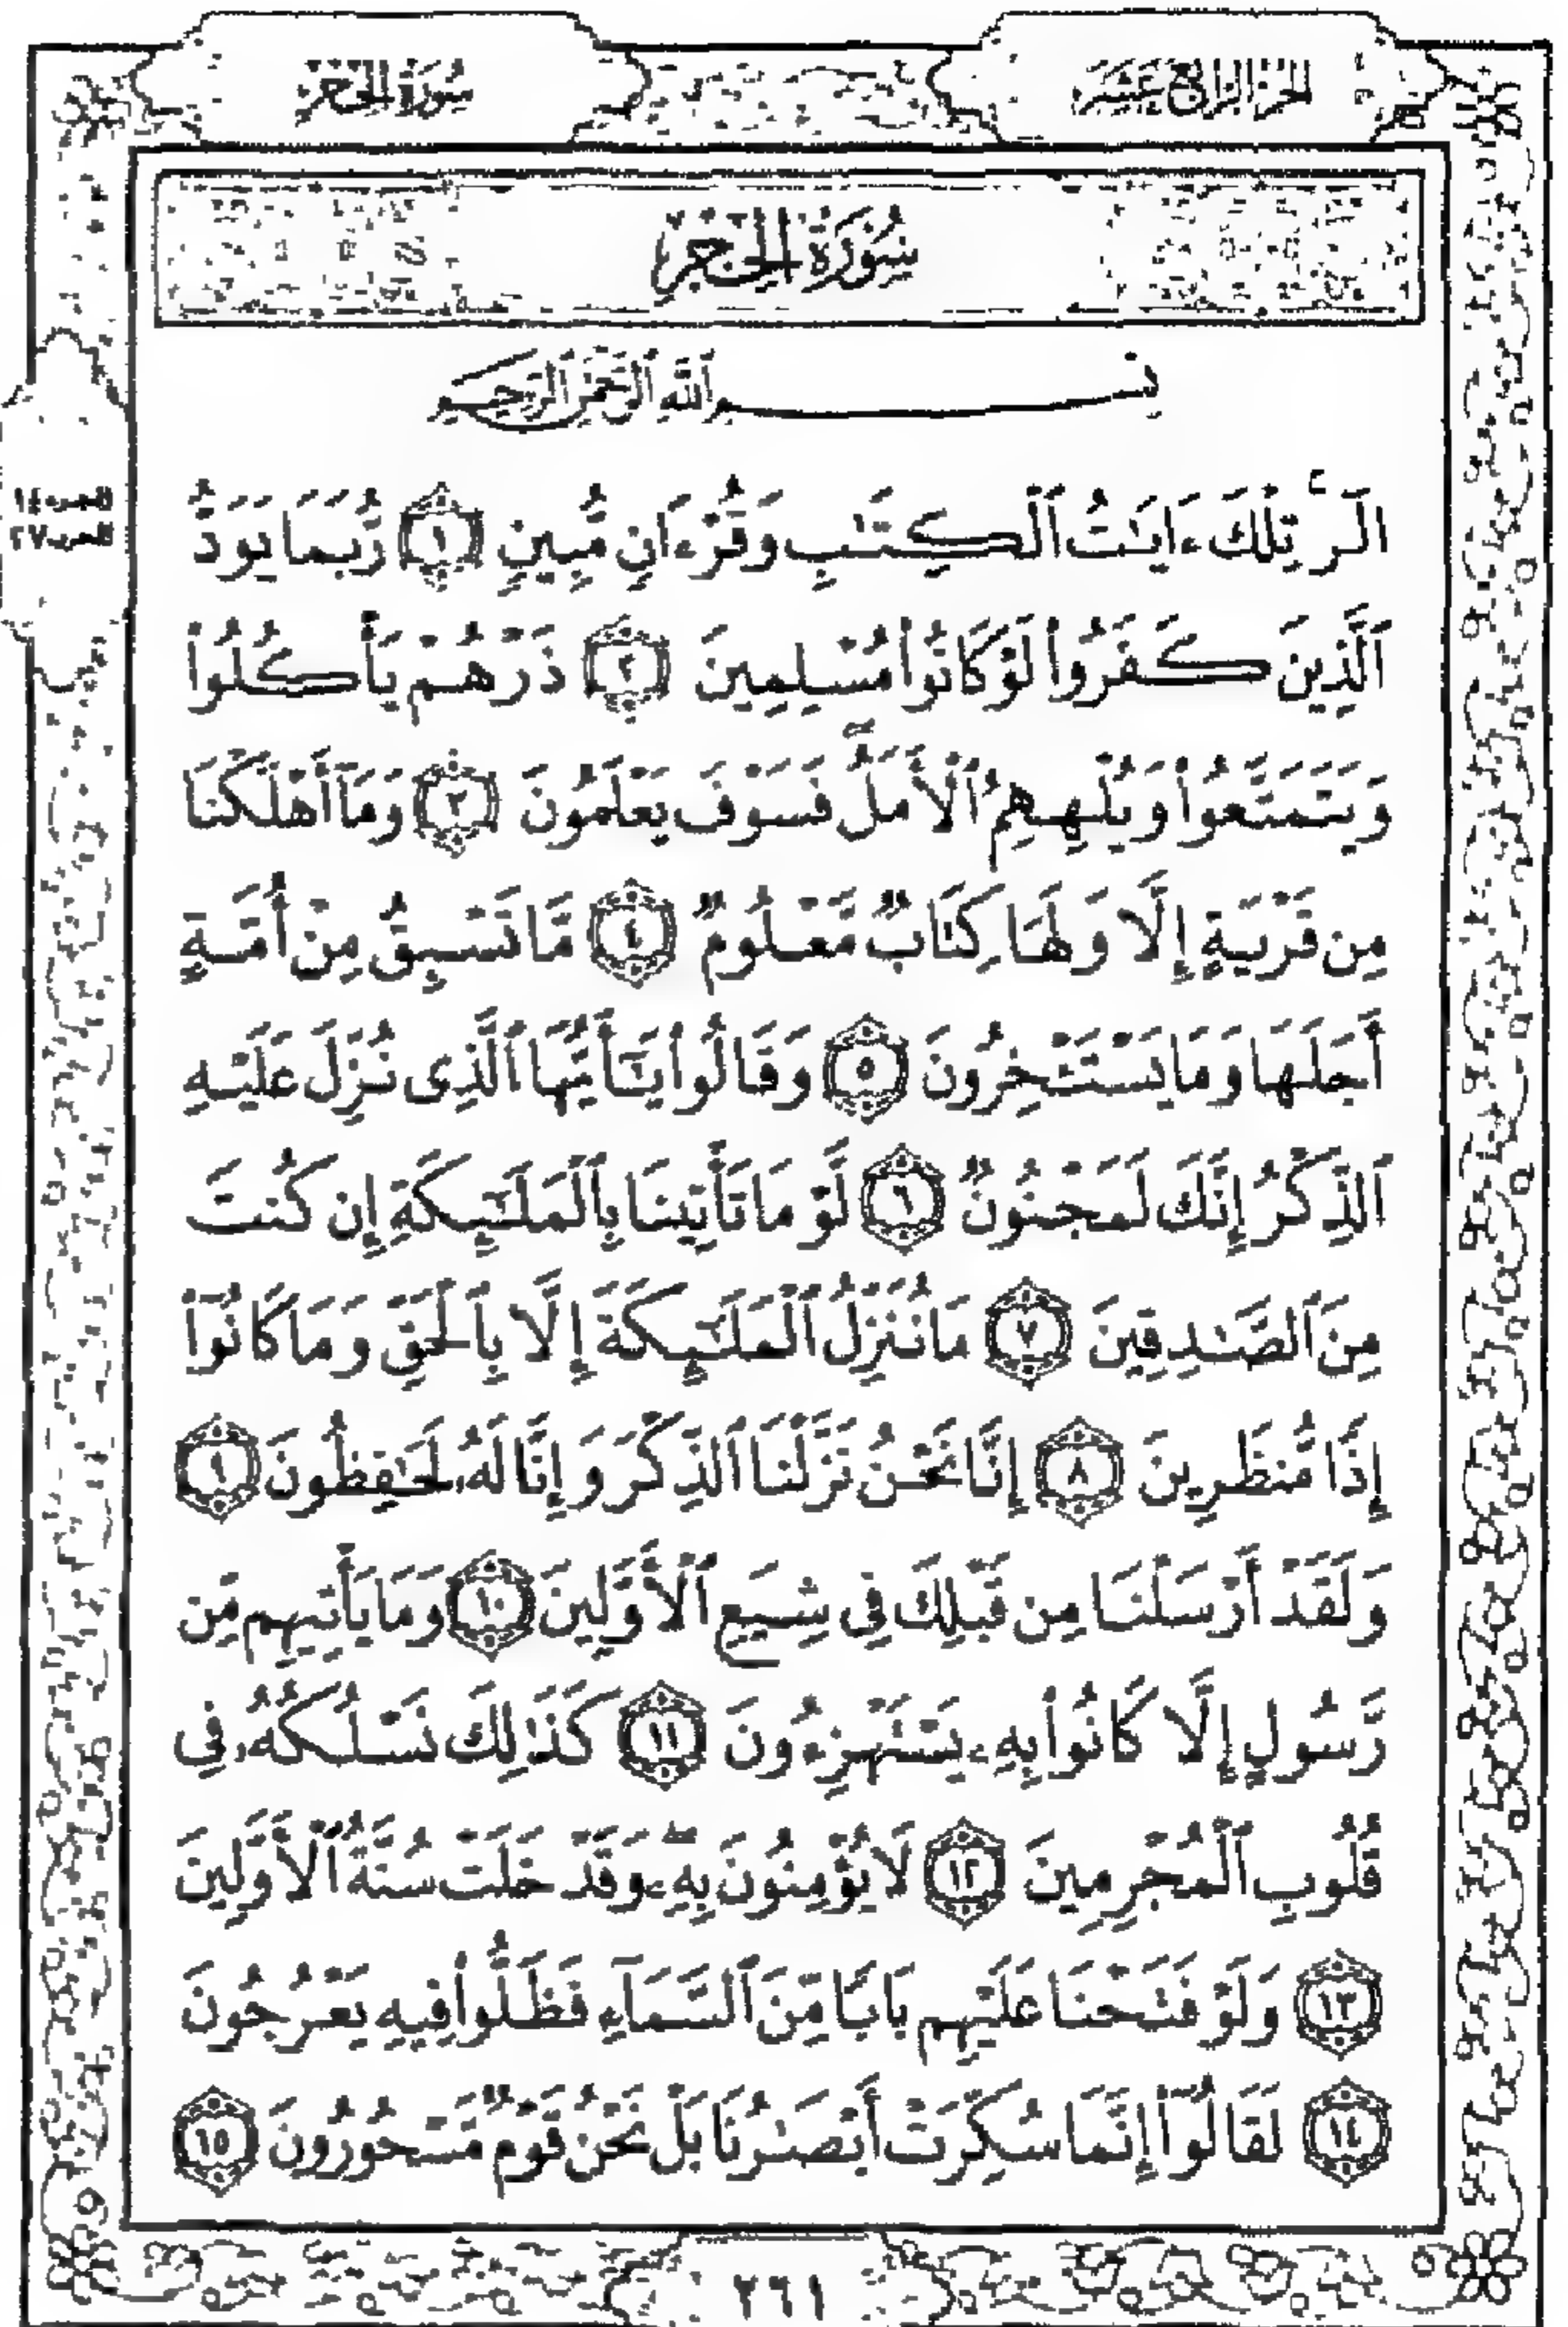 الجزء الرابع عشر
سورة الحجر
سُورَةُ الحِجْرِ
بِسْمِ ٱللَّهِ ٱلرَّحْمَٰنِ ٱلرَّحِيمِ
الٓر ۚ تِلْكَ ءَايَٰتُ ٱلْكِتَٰبِ وَقُرْءَانٍ مُّبِينٍ ١ رُّبَمَا يَوَدُّ
ٱلَّذِينَ كَفَرُوا۟ لَوْ كَانُوا۟ مُسْلِمِينَ ٢ ذَرْهُمْ يَأْكُلُوا۟
وَيَتَمَتَّعُوا۟ وَيُلْهِهِمُ ٱلْأَمَلُ ۖ فَسَوْفَ يَعْلَمُونَ ٣ وَمَآ أَهْلَكْنَا
مِن قَرْيَةٍ إِلَّا وَلَهَا كِتَابٌ مَّعْلُومٌ ٤ مَّا تَسْبِقُ مِنْ أُمَّةٍ
أَجَلَهَا وَمَا يَسْتَـْٔخِرُونَ ٥ وَقَالُوا۟ يَٰٓأَيُّهَا ٱلَّذِى نُزِّلَ عَلَيْهِ
ٱلذِّكْرُ إِنَّكَ لَمَجْنُونٌ ٦ لَّوْ مَا تَأْتِينَا بِٱلْمَلَٰٓئِكَةِ إِن كُنتَ
مِنَ ٱلصَّٰدِقِينَ ٧ مَا نُنَزِّلُ ٱلْمَلَٰٓئِكَةَ إِلَّا بِٱلْحَقِّ وَمَا كَانُوٓا۟
إِذًا مُّنظَرِينَ ٨ إِنَّا نَحْنُ نَزَّلْنَا ٱلذِّكْرَ وَإِنَّا لَهُۥ لَحَٰفِظُونَ ٩
وَلَقَدْ أَرْسَلْنَا مِن قَبْلِكَ فِى شِيَعِ ٱلْأَوَّلِينَ ١٠ وَمَا يَأْتِيهِم مِّن
رَّسُولٍ إِلَّا كَانُوا۟ بِهِۦ يَسْتَهْزِءُونَ ١١ كَذَٰلِكَ نَسْلُكُهُۥ فِى
قُلُوبِ ٱلْمُجْرِمِينَ ١٢ لَا يُؤْمِنُونَ بِهِۦ ۖ وَقَدْ خَلَتْ سُنَّةُ ٱلْأَوَّلِينَ
١٣ وَلَوْ فَتَحْنَا عَلَيْهِم بَابًا مِّنَ ٱلسَّمَآءِ فَظَلُّوا۟ فِيهِ يَعْرُجُونَ
١٤ لَقَالُوٓا۟ إِنَّمَا سُكِّرَتْ أَبْصَٰرُنَا بَلْ نَحْنُ قَوْمٌ مَّسْحُورُونَ ١٥
٢٦١